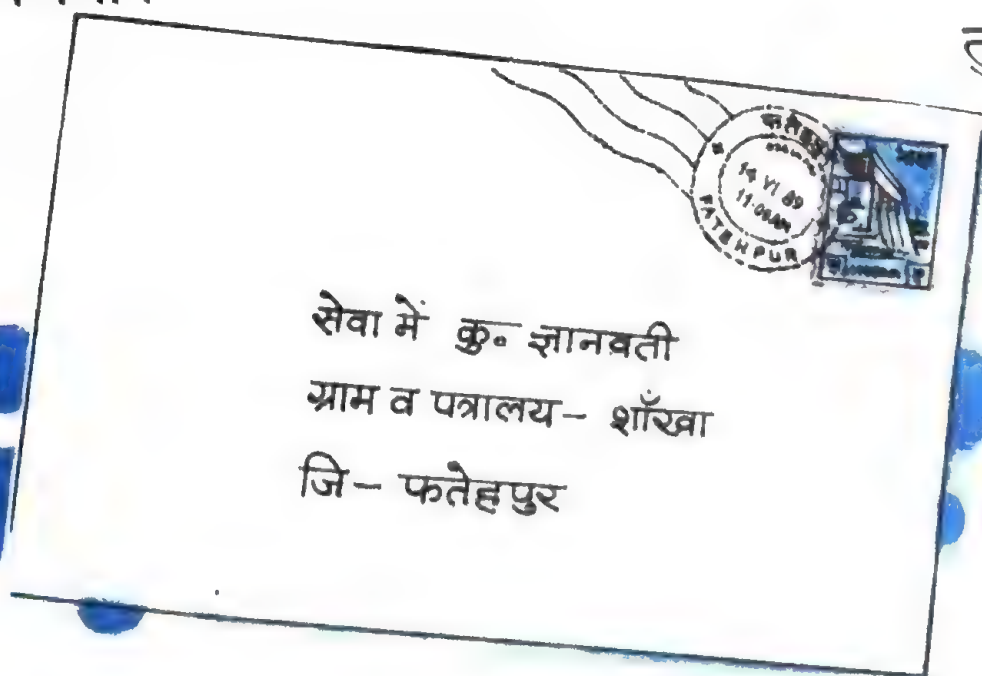 फतेहपुर
14 VI 89
11·00AM
FATEHPUR
सेवा में कु॰ ज्ञानवती
ग्राम व पत्रालय – शाँखा
जि – फतेहपुर